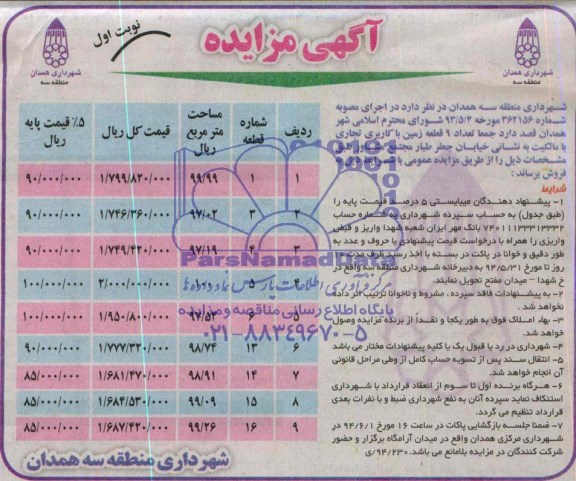 آگهی مزایده
نوبت اول
شهرداری همدان
منطقه سه
شهرداری همدان
منطقه سه
شهرداری منطقه سه همدان در نظر دارد در اجرای مصوبه
شماره ۳۶۲۱۵۶ مورخه ۹۳/۵/۴ شورای محترم اسلامی شهر
همدان قصد دارد جمعا تعداد ۹ قطعه زمین با کاربری تجاری
با مالکیت به نشانی خیابان جعفر طیار مجتمع
مشخصات ذیل را از طریق مزایده عمومی با شرایط ذیل به
فروش برساند :
شرایط
۱- پیشنهاد دهندگان میبایستی ۵ درصد قیمت پایه را
(طبق جدول) به حساب سپرده شهرداری به شماره حساب
۷۴۰۱۱۱۳۳۱۳۳۳۲ بانک مهر ایران شعبه شهدا واریز و فیش
واریزی را همراه با درخواست قیمت پیشنهادی با حروف و عدد به
طور دقیق و خوانا در پاکت در بسته با اخذ رسید ظرف مدت ۱۰
روز تا مورخ ۹۴/۵/۳۱ به دبیرخانه شهرداری منطقه سه واقع در
خ شهدا – میدان مفتح تحویل نمایند.
۲- به پیشنهادات فاقد سپرده ، مشروط و ناخوانا ترتیب اثر داده
نخواهد شد .
۳- بهاء املاک فوق به طور یکجا و نقداً از برنده مزایده وصول
خواهد شد.
۴- شهرداری در رد یا قبول یک یا کلیه پیشنهادات مختار می باشد
۵- انتقال سند پس از تسویه حساب کامل از وطی مراحل قانونی
آن انجام خواهد شد.
۶- هرگاه برنده اول تا سوم از انعقاد قرارداد با شهرداری
استنکاف نماید سپرده آنان به نفع شهرداری ضبط و با نفرات بعدی
قرارداد تنظیم می گردد.
۷- ضمنا جلسه بازگشایی پاکات در ساعت ۱۶ مورخ ۹۴/۶/۱ در
شهرداری مرکزی همدان واقع در میدان آرامگاه برگزار و حضور
شرکت کنندگان در مزایده بلامانع می باشد. ۹۴/۲۳۰/ی
ردیف شماره قطعه مساحت متر مربع ریال قیمت کل ریال ۵٪ قیمت پایه ریال
۱ ۱ ۹۹/۹۹ ۱/۷۹۹/۸۲۰/۰۰۰ ۹۰/۰۰۰/۰۰۰
۲ ۳ ۹۷/۰۲ ۱/۷۴۶/۳۶۰/۰۰۰ ۹۰/۰۰۰/۰۰۰
۳ ۴ ۹۷/۱۹ ۱/۷۴۹/۴۲۰/۰۰۰ ۹۰/۰۰۰/۰۰۰
۴ ۵ ۲/۰۰۰/۰۰۰/۰۰۰ ۱۰۰/۰۰۰/۰۰۰
۵ ۶ ۹۷/۵۴ ۱/۹۵۰/۸۰۰/۰۰۰ ۱۰۰/۰۰۰/۰۰۰
۶ ۱۳ ۹۸/۷۴ ۱/۷۷۷/۳۲۰/۰۰۰ ۹۰/۰۰۰/۰۰۰
۷ ۱۴ ۹۸/۹۱ ۱/۶۸۱/۴۷۰/۰۰۰ ۸۵/۰۰۰/۰۰۰
۸ ۱۵ ۹۹/۰۹ ۱/۶۸۴/۵۳۰/۰۰۰ ۸۵/۰۰۰/۰۰۰
۹ ۱۶ ۹۹/۲۶ ۱/۶۸۷/۴۲۰/۰۰۰ ۸۵/۰۰۰/۰۰۰
ParsNamadData
پایگاه اطلاع رسانی مناقصه و مزایده
۰۲۱-۸۸۳۴۹۶۷۰-۵
شهرداری منطقه سه همدان